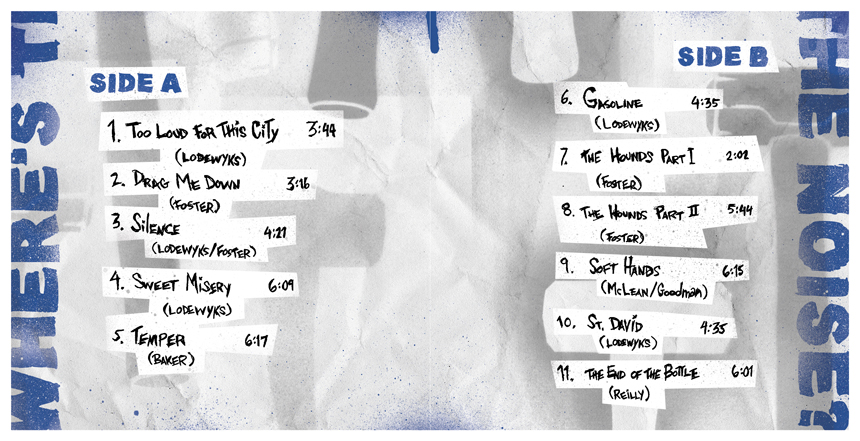 WHERE'S TH
SIDE A
1. Too Loud For This City 3:44
(Lodewyks)
2. Drag Me Down 3:16
(Foster)
3. Silence 4:27
(Lodewyks/Foster)
4. Sweet Misery 6:09
(Lodewyks)
5. Temper 6:17
(Baker)
SIDE B
6. Gasoline 4:35
(Lodewyks)
7. The Hounds Part I 2:02
(Foster)
8. The Hounds Part II 5:44
(Foster)
9. Soft Hands 6:15
(McLean/Goodman)
10. St. David 4:35
(Lodewyks)
11. The End of the Bottle 6:01
(Reilly)
THE NOISE?